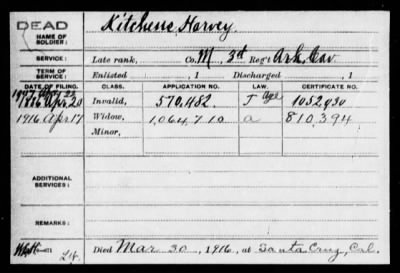 DEAD
NAME OF SOLDIER:
Kitchens, Harvey.
SERVICE:
Late rank, Co. M, 3d Reg't Ark. Cav.
TERM OF SERVICE:
Enlisted , 1 Discharged , 1
DATE OF FILING. CLASS. APPLICATION NO. LAW. CERTIFICATE NO.
1886 Apr 20 Invalid, 570,482. J Age 1052930
1916 Apr 17 Widow, 1,064,710 a 810,394
Minor,
ADDITIONAL SERVICES:
REMARKS:
Died Mar 30, 1916, at Santa Cruz, Cal.